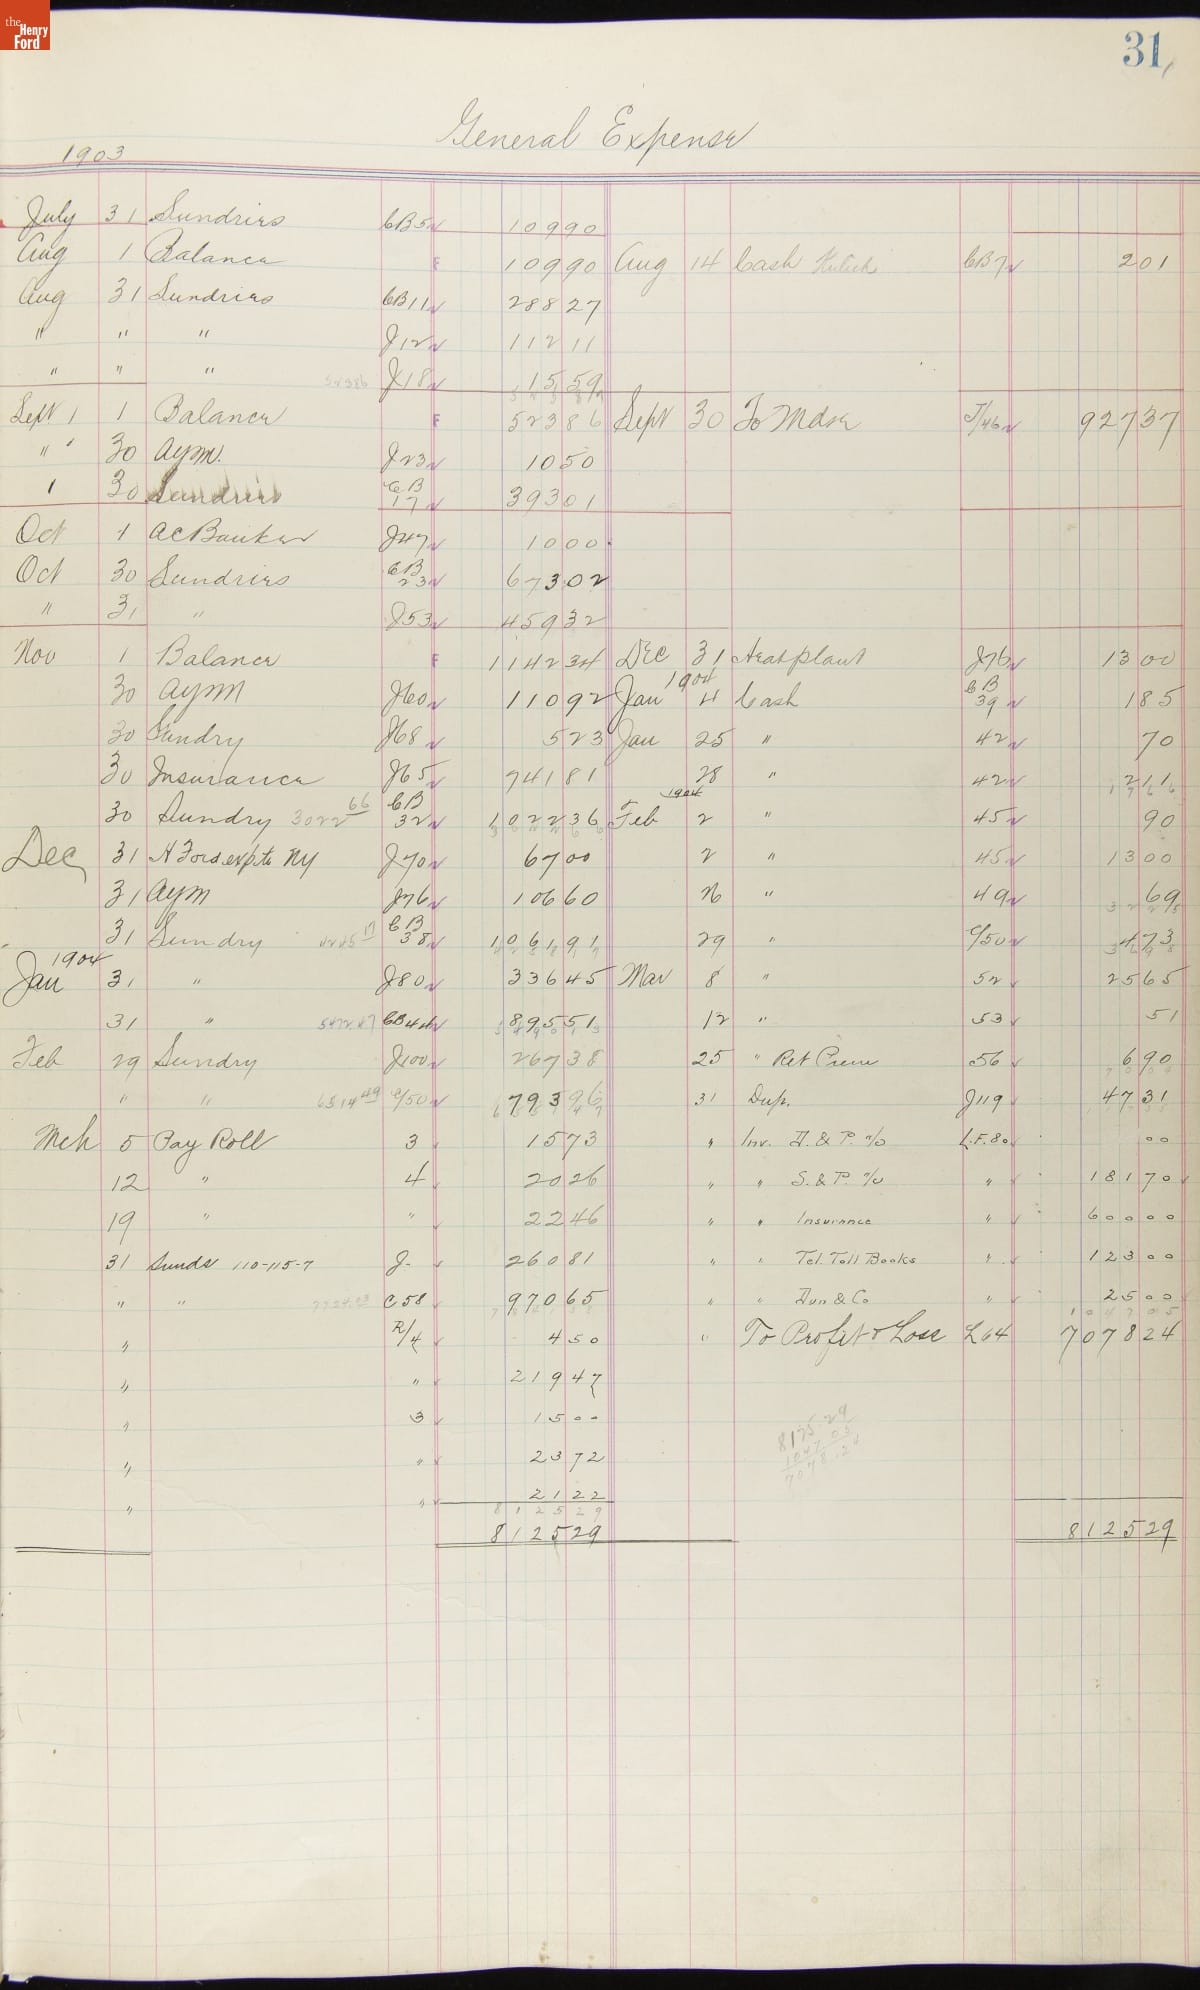 the Henry Ford
31
General Expense
1903
July 31 Sundries CB5 10990
Aug 1 Balance F 10990 Aug 14 Cash CB7 201
Aug 31 Sundries CB11 28827
" " " J12 11211
" " " 52386 J18 1559
Sept 1 1 Balance F 52386 Sept 30 To Mdse J/46 92737
" " 30 aym. J23 1050
30 Sundries CB 17 39301
Oct 1 J47 1000
Oct 30 Sundries CB 23 67302
" 31 " J53 45932
Nov 1 Balance F 114234 Dec 31 Heatplant J76 1300
30 aym J60 11092 Jan 1904 4 Cash CB 39 185
30 Sundry J68 523 Jan 25 " 42 70
30 Insurance J65 74181 28 " 42 211
30 Sundry 3022 66 CB 32 102236 1904 Feb 2 " 45 90
Dec 31 H Ford exp to NY J70 6700 2 " 45 1300
31 aym J76 10660 26 " 49 69
31 Sundry 4245 17 CB 38 106191 29 " C/50 473
1904
Jan 31 " J80 33645 Mar 8 " 52 2565
31 " 5472.47 CB44 89551 12 " 53 51
Feb 29 Sundry J100 26738 25 " Ret Prem 56 690
" " 6514 49 C/50 79396 31 Dup. J119 4731
Mch 5 Pay Roll 3 1573 " Inv. A. & P. % L.F.80 00
12 " 4 2026 " " S. & P. % " 18170
19 " " 2246 " " Insurance " 60000
31 Sunds 110-115-7 J- 26081 " " Tel. Toll Books " 12300
" " C58 97065 " " Dun & Co " 2500
104705
" R/4 450 " To Profit & Loss L64 707824
" " 21947
" 3 1500
" " 2372
" " 2122
8175.29
1047.05
7078.24
812529
812529 812529